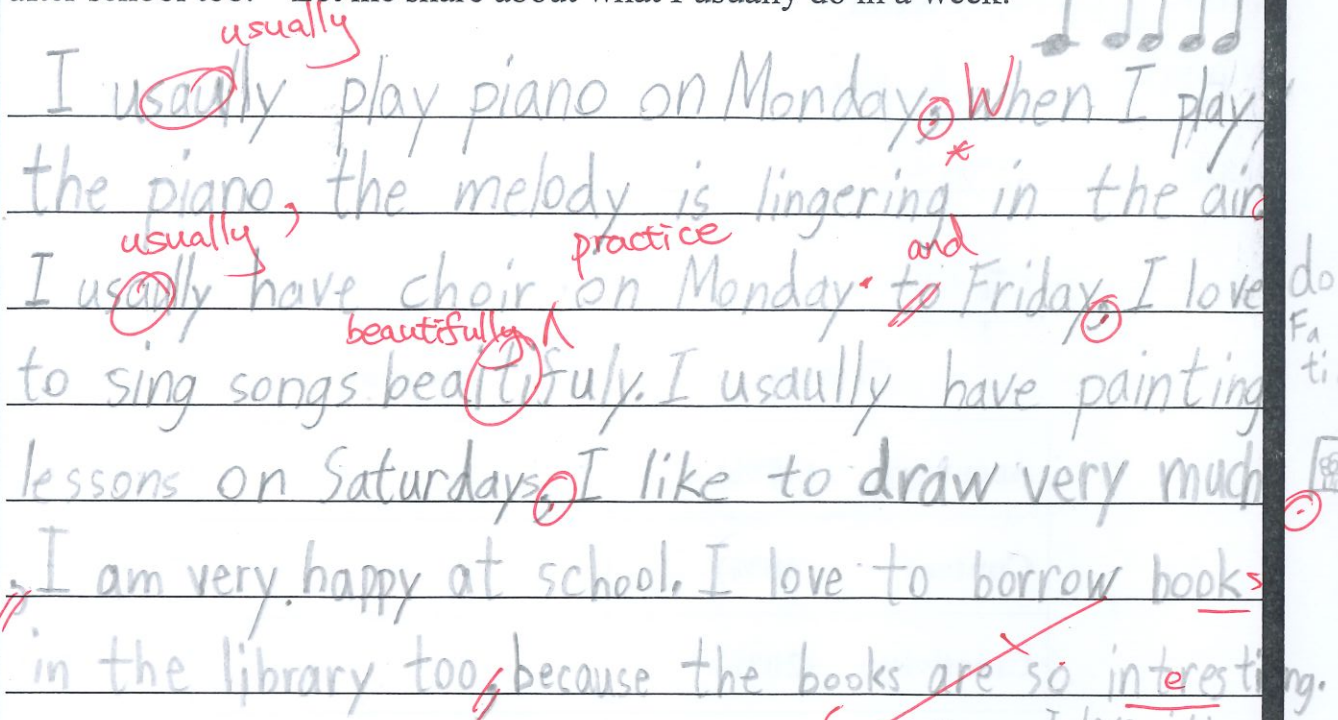 after school too. Let me share about what I usually do in a week.
usually
I usaully play piano on Monday, When I play
the piano, the melody is lingering in the air
usually practice and
I usaully have choir on Monday to Friday, I love do
beautifully Fa
to sing songs beautifuly. I usaully have painting ti
lessons on Saturdays, I like to draw very much.
, I am very happy at school. I love to borrow books
in the library too, because the books are so interesting.